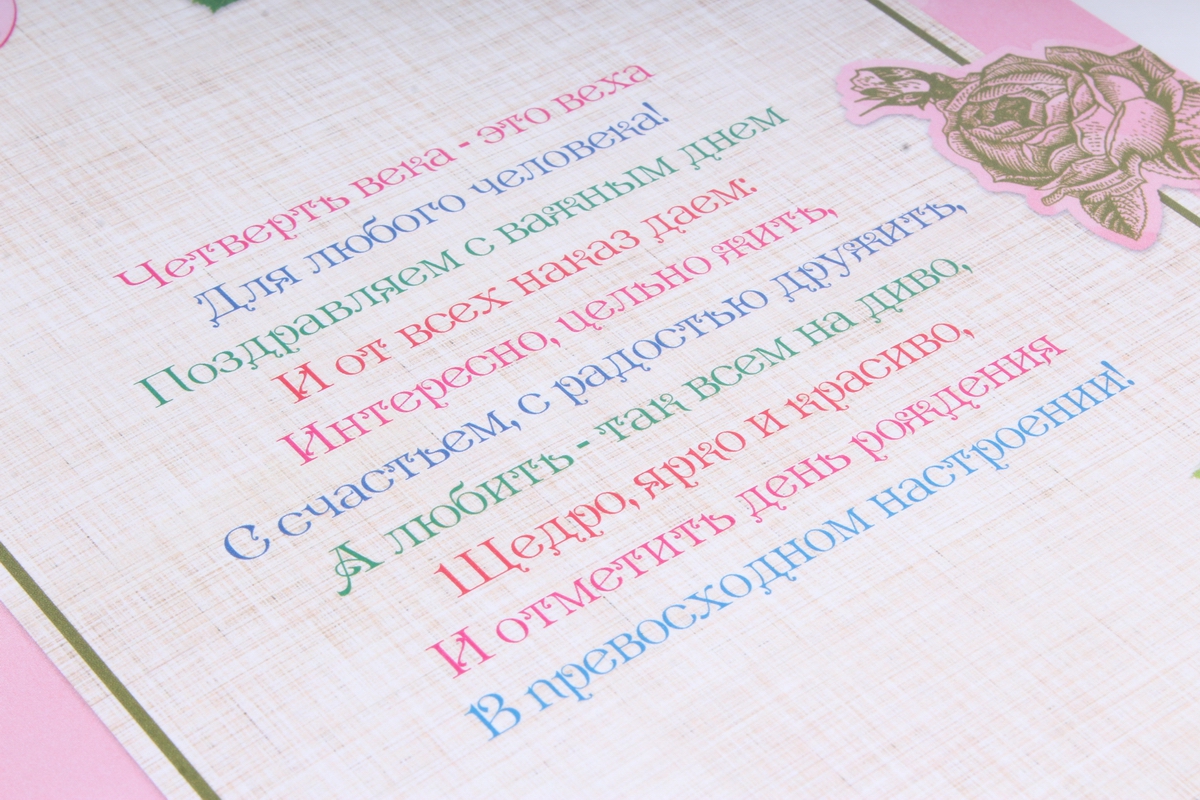 Четверть века - это веха
Для любого человека!
Поздравляем с важным днем
И от всех наказ даем:
Интересно, цельно жить,
С счастьем, с радостью дружить,
А любить - так всем на диво,
Щедро, ярко и красиво,
И отметить день рождения
В превосходном настроении!